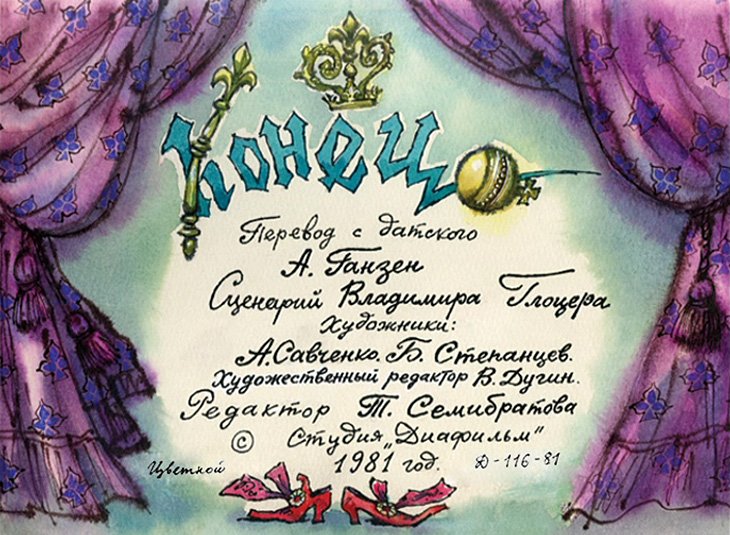 Конец
Перевод с датского
А. Ганзен
Сценарий Владимира Глоцера
Художники:
А. Савченко, Б. Степанцев.
Художественный редактор В. Дугин.
Редактор Т. Семибратова
© Студия „Диафильм"
Цветной 1981 год. Д-116-81